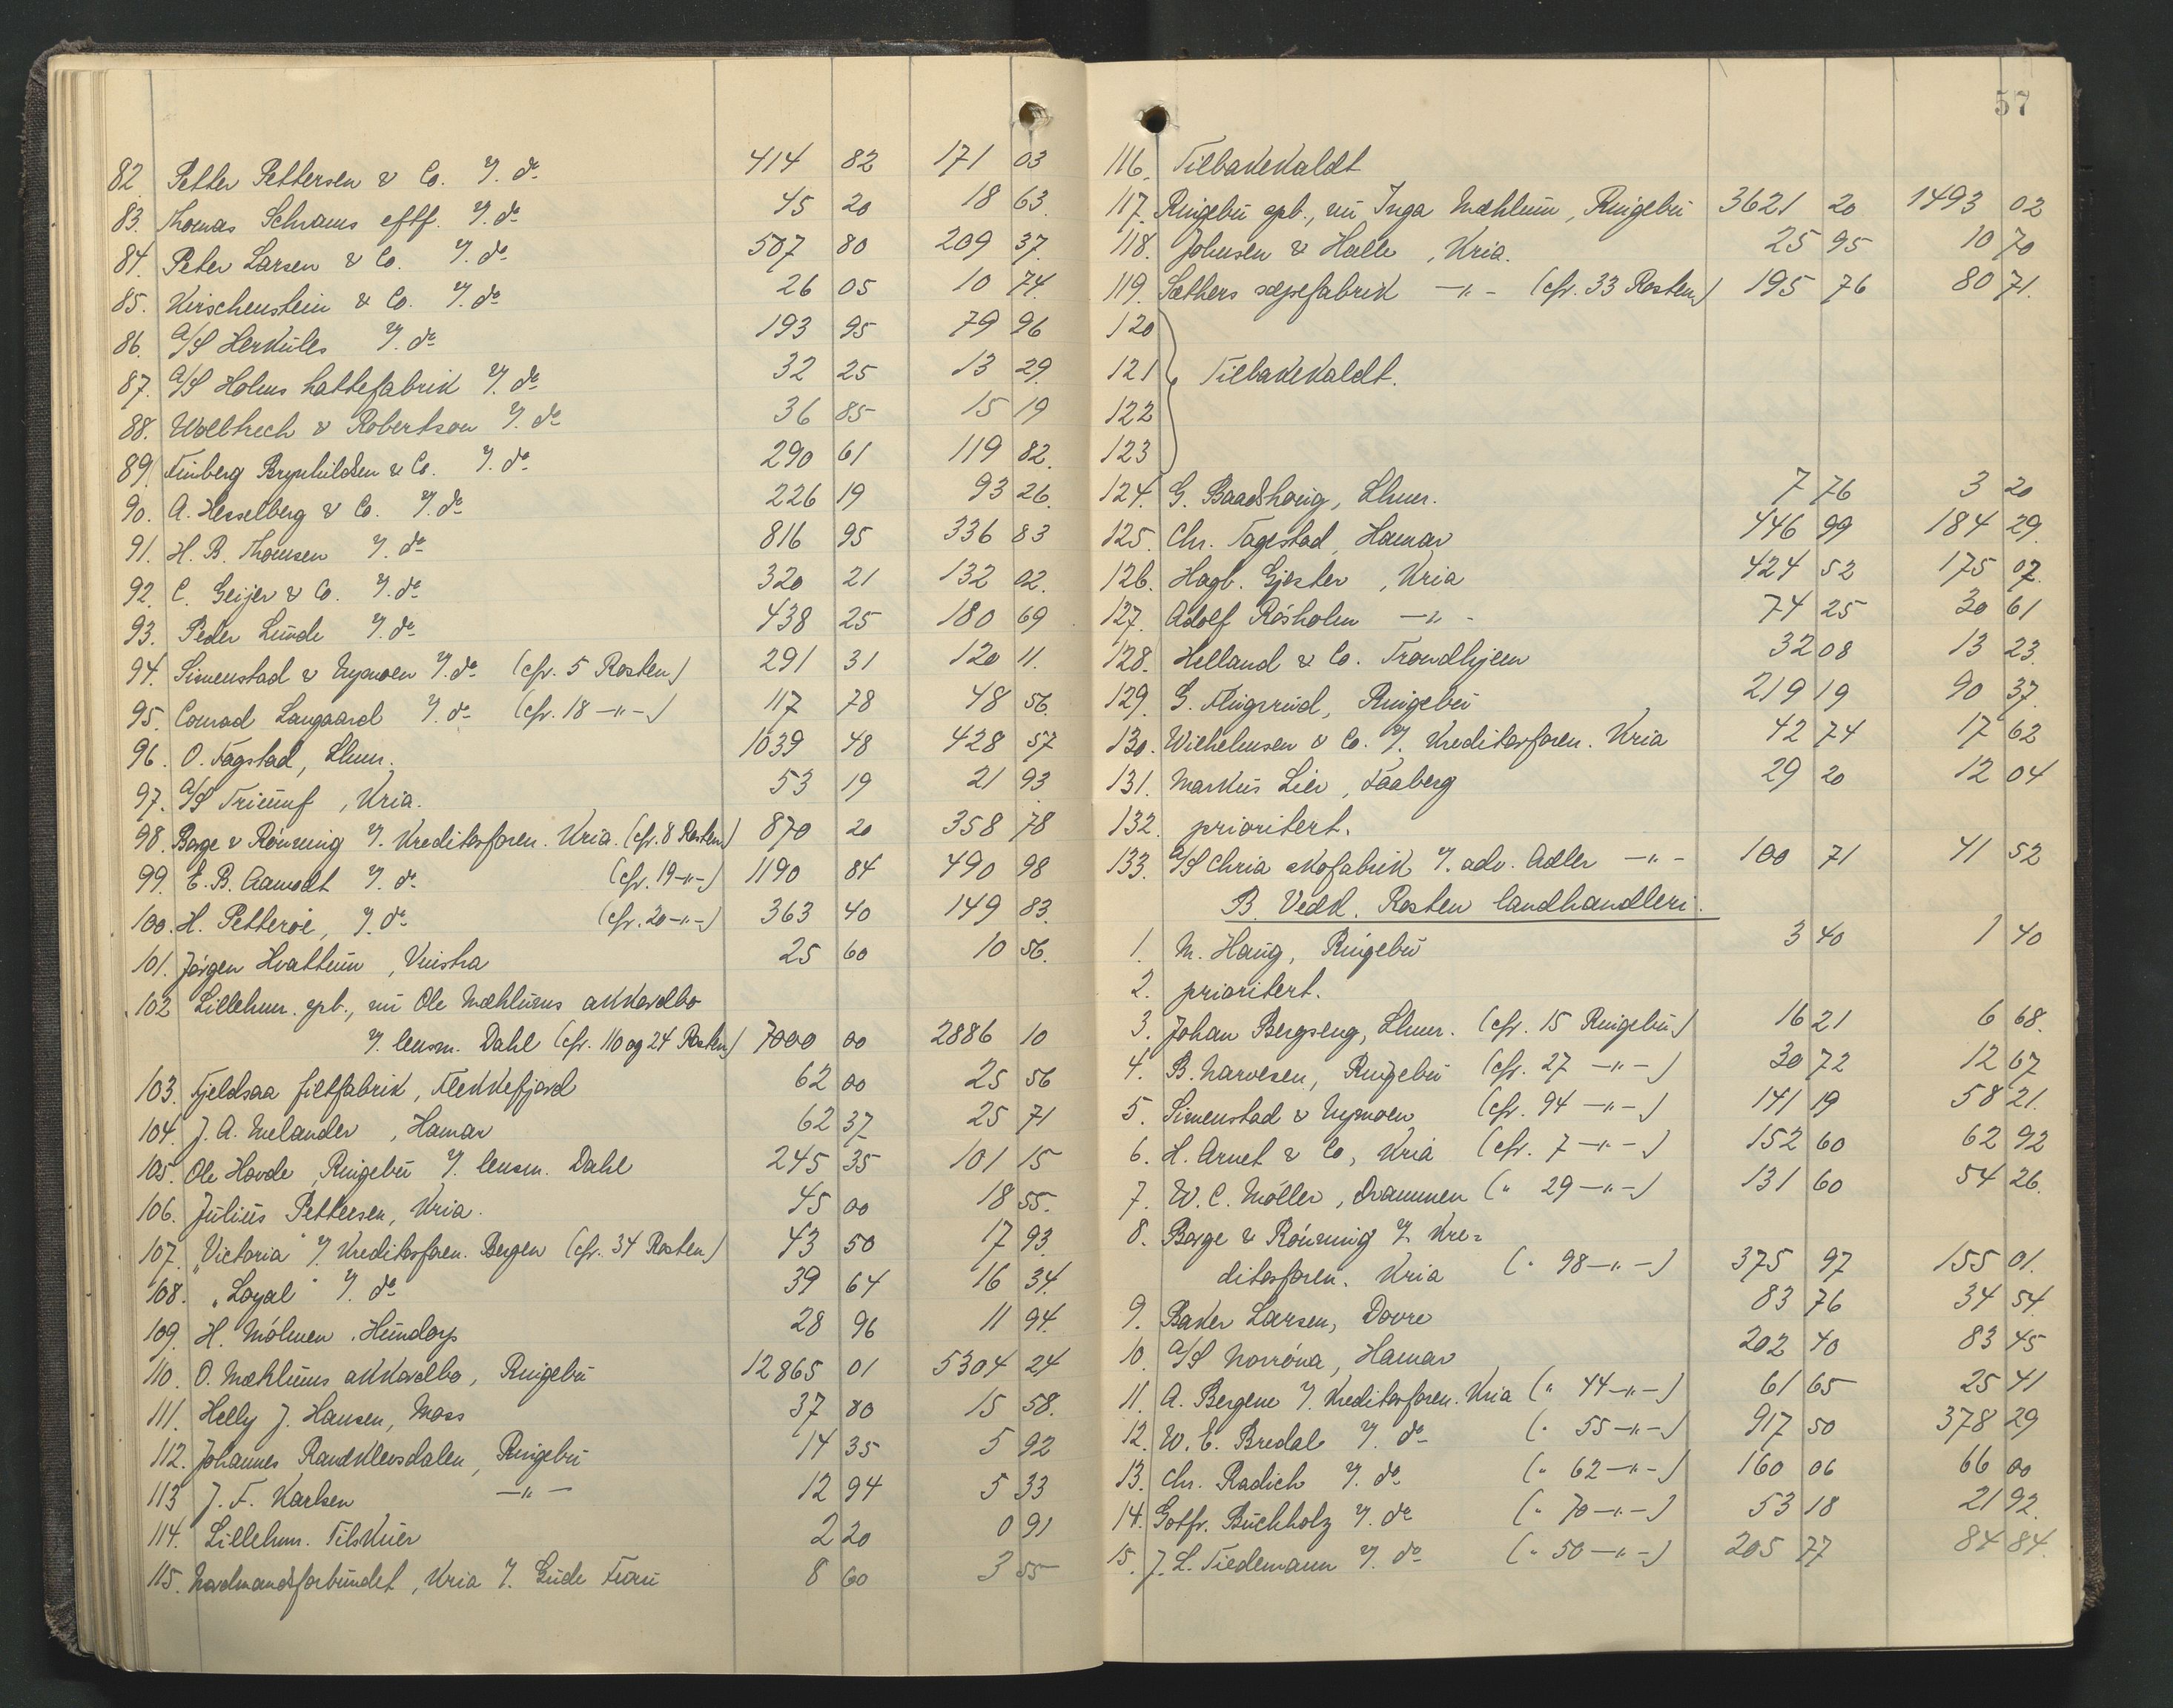 82. Petter Pettersen & Co. v/. do 414 82 171 03
83. Thomas Schrams eftf. v/. do 45 20 18 63.
84. Peter Larsen & Co. v/. do 507 80 209 37.
85. Kirschenstein & Co. v/. do 26 05 10 74.
86. A/S Herkules v/. do 193 95 79 96
87. A/S Holms hattefabrik v/. do 32 25 13 29.
88. & Robertson v/. do 36 85 15 19
89. Brynhildsen & Co. v/. do 290 61 119 82.
90. A. Hesselberg & Co. v/. do 226 19 93 26.
91. H. B. Thomsen v/. do 816 95 336 83
92. C. Geijer & Co. v/. do 320 21 132 02.
93. Peder Lunde v/. do 438 25 180 69
94. Simenstad & Nymoen v/. do (cfr. 5 Rosten) 291 31 120 11.
95. Conrad Langaard v/. do (cfr. 18 -"-) 117 78 48 56.
96. O. Fagstad, Lhmr. 1039 48 428 57
97. A/S Triumf, Kria. 53 19 21 93
98. Borge & Rönning v/. Kreditorforen. Kria. (cfr. 8 Rosten) 870 20 358 78
99. E. B. Aamodt v/. do (cfr. 19 -"-) 1190 84 490 98
100. H. Petteröe, v/. do (cfr. 20 -"-) 363 40 149 83.
101. Jörgen Hvattum, Vinstra 25 60 10 56.
102 Lillehm. spb., nu Ole Mæhlums akkordbo
v/. lensm. Dahl (cfr. 110 og 24 Rosten) 7000 00 2886 10
103. Fjeldsaa filtfabrik, Flekkefjord 62 00 25 56
104. J. A. Melander, Hamar 62 37 25 71
105. Ole Hovde, Ringebu v/. lensm. Dahl 245 35 101 15
106. Julius Pettersen, Kria. 45 00 18 55.
107. "Victoria" v/. Kreditorforen. Bergen (cfr. 34 Rosten) 43 50 17 93.
108. "Loyal" v/. do 39 64 16 34.
109. H. Mölmen, Hundorp 28 96 11 94.
110. O. Mæhlums akkordbo, Ringebu 12865 01 5304 24
111. Helly J. Hansen, Moss 37 80 15 58.
112. Johannes Randklevsdalen, Ringebu 14 35 5 92
113 J. F. Karlsen -"- 12 94 5 33
114. Lillehm. Tilskuer 2 20 0 91
115. Nordmandsforbundet, Kria v/. 8 60 3 55
57
116. Tilbakekaldt
117. Ringebu spb., nu Inga Mæhlum, Ringebu 3621 20 1493 02
118. Johnsen & Halle, Kria. 25 95 10 70
119. Sæthers sæpefabrik -"- (cfr. 33 Rosten) 195 76 80 71.
120
121 Tilbakekaldt.
122
123
124. G. Baadshaug, Lhmr. 7 76 3 20
125. Chr. Fagestad, Hamar 446 99 184 29.
126. Hagb. Gjester, Kria 424 52 175 07.
127. Adolf Rösholm -"- 74 25 30 61
128. Helland & Co. Trondhjem 32 08 13 23.
129. G. Flugsrud, Ringebu 219 19 90 37.
130. Wilhelmsen & Co. v/. Kreditorforen. Kria 42 74 17 62
131. Markus Lier, Faaberg 29 20 12 04
132. prioritert.
133. A/S Chria skofabrik v/. adv. Adler -"- 100 71 41 52
B. Vedk. Rosten landhandleri.
1. M. Haug, Ringebu 3 40 1 40
2. prioritert.
3. Johan Bergseng, Lhmr. (cfr. 15 Ringebu) 16 21 6 68.
4. B. Narvesen, Ringebu (cfr. 27 -"-) 30 72 12 67
5. Simenstad & Nymoen (cfr. 94 -"-) 141 19 58 21.
6. H. Arnet & Co, Kria (cfr. 7 -"-) 152 60 62 92
7. W. C. Möller, Drammen (" 29 -"-) 131 60 54 26.
8. Borge & Rönning v/. Kre=
ditorforen. Kria (" 98 -"-) 375 97 155 01.
9. Baker Larsen, Dovre 83 76 34 54.
10. A/S Norröna, Hamar 202 40 83 45
11. A. Bergene v/. Kreditorforen. Kria (" 44 -"-) 61 65 25 41
12. W. E. Bredal v/. do (" 55 -"-) 917 50 378 29
13. Chr. Radich v/. do (" 62 -"-) 160 06 66 00
14. Gotfr. Buchholz v/. do (" 70 -"-) 53 18 21 92.
15. J. L. Tiedemann v/. do (" 50 -"-) 205 77 84 84.